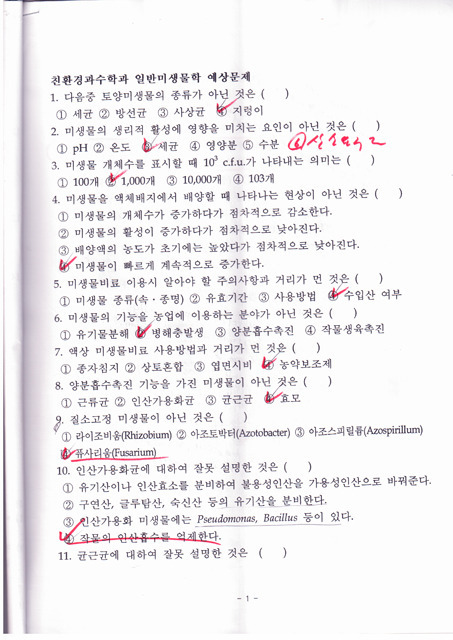 친환경과수학과 일반미생물학 예상문제
1. 다음중 토양미생물의 종류가 아닌 것은 ( )
① 세균 ② 방선균 ③ 사상균 ④ 지렁이
2. 미생물의 생리적 활성에 영향을 미치는 요인이 아닌 것은 ( )
① pH ② 온도 ③ 세균 ④ 영양분 ⑤ 수분
3. 미생물 개체수를 표시할 때 10³ c.f.u.가 나타내는 의미는 ( )
① 100개 ② 1,000개 ③ 10,000개 ④ 103개
4. 미생물을 액체배지에서 배양할 때 나타나는 현상이 아닌 것은 ( )
① 미생물의 개체수가 증가하다가 점차적으로 감소한다.
② 미생물의 활성이 증가하다가 점차적으로 낮아진다.
③ 배양액의 농도가 초기에는 높았다가 점차적으로 낮아진다.
④ 미생물이 빠르게 계속적으로 증가한다.
5. 미생물비료 이용시 알아야 할 주의사항과 거리가 먼 것은 ( )
① 미생물 종류(속·종명) ② 유효기간 ③ 사용방법 ④ 수입산 여부
6. 미생물의 기능을 농업에 이용하는 분야가 아닌 것은 ( )
① 유기물분해 ② 병해충발생 ③ 양분흡수촉진 ④ 작물생육촉진
7. 액상 미생물비료 사용방법과 거리가 먼 것은 ( )
① 종자침지 ② 상토혼합 ③ 엽면시비 ④ 농약보조제
8. 양분흡수촉진 기능을 가진 미생물이 아닌 것은 ( )
① 근류균 ② 인산가용화균 ③ 균근균 ④ 효모
9. 질소고정 미생물이 아닌 것은 ( )
① 라이조비움(Rhizobium) ② 아조토박터(Azotobacter) ③ 아조스피릴룸(Azospirillum)
④ 퓨사리움(Fusarium)
10. 인산가용화균에 대하여 잘못 설명한 것은 ( )
① 유기산이나 인산효소를 분비하여 불용성인산을 가용성인산으로 바꿔준다.
② 구연산, 글루탐산, 숙신산 등의 유기산을 분비한다.
③ 인산가용화 미생물에는 Pseudomonas, Bacillus 등이 있다.
④ 작물의 인산흡수를 억제한다.
11. 균근균에 대하여 잘못 설명한 것은 ( )
- 1 -